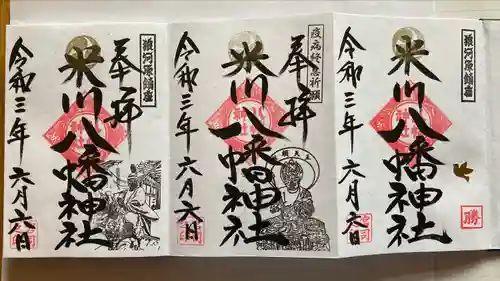 狼河原鎮座
米川八幡神社
令和三年 六月六日
勝
疫病終息祈願
奉拝
米川八幡神社
令和三年 六月六日
狼河原鎮座
奉拝
米川八幡神社
令和三年 六月六日